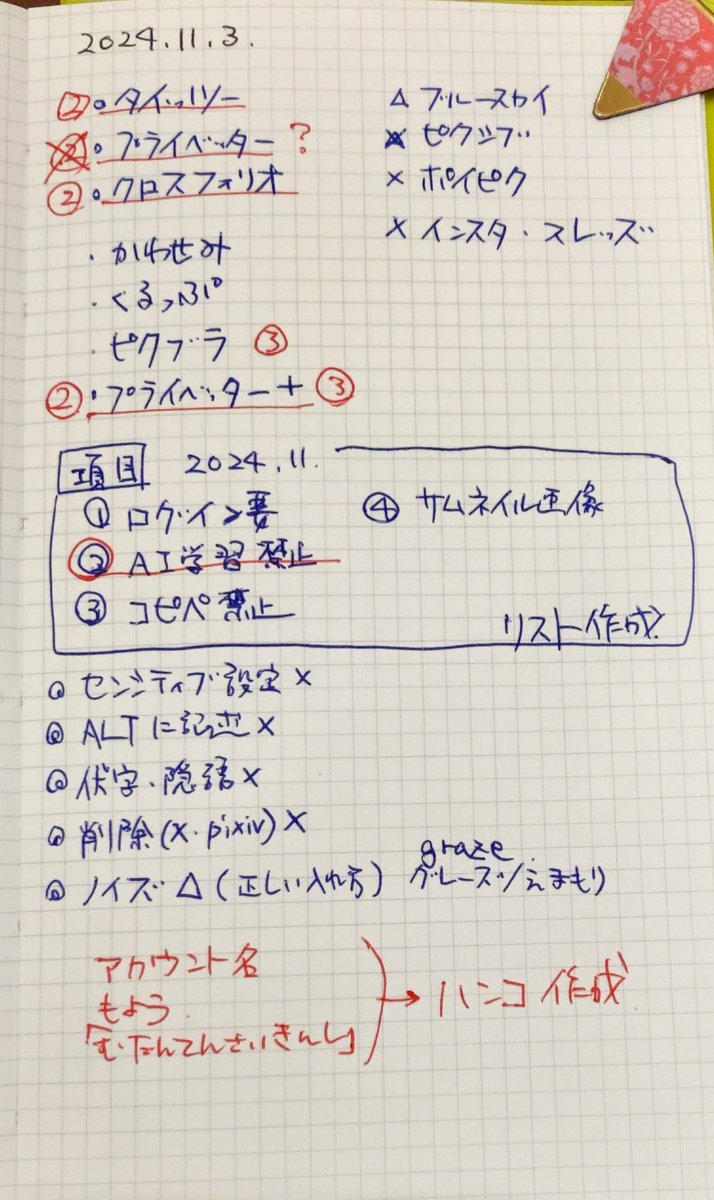 2024.11.3.
②。タイッツー
②。プライベッター?
②。クロスフォリオ
・かわせみ
・くるっぷ
・ピクブラ ③
②・プライベッター+ ③
△ ブルースカイ
× ピクシブ
× ポイピク
× インスタ・スレッズ
項目 2024.11.
① ログイン要
② AI学習禁止
③ コピペ禁止
④ サムネイル画像
リスト作成
◎ センシティブ設定×
◎ ALTに記述×
◎ 伏字・隠語×
◎ 削除(X・pixiv)×
◎ ノイズ△(正しい入れ方)
graze
グレーズ/えまもり
アカウント名
もよう
「む・だんてんさいきんし」
→ハンコ作成